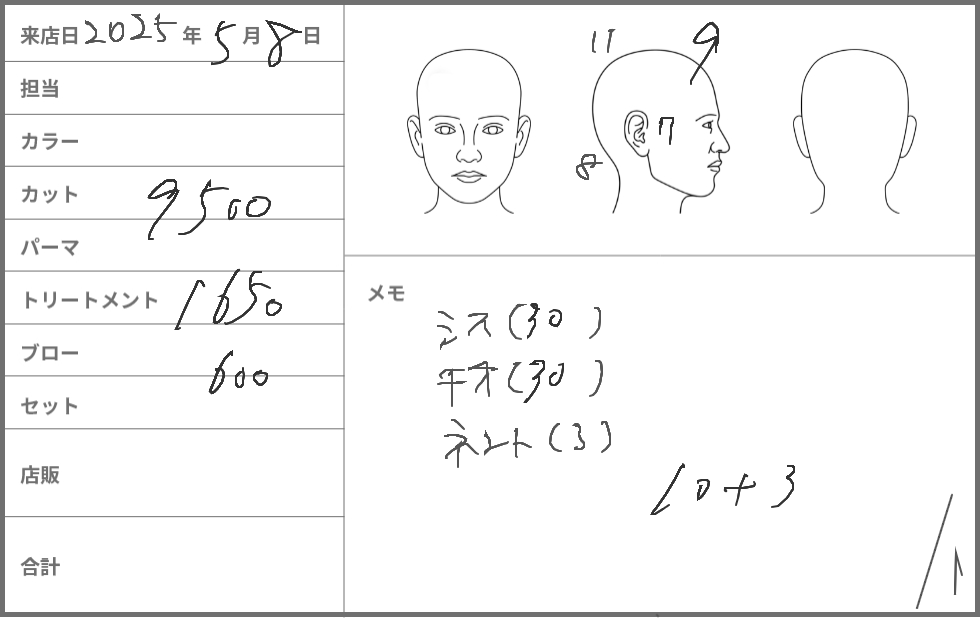 来店日 2025 年 5 月 8 日
担当
カラー
カット 9500
パーマ
トリートメント 1650
ブロー 600
セット
店販
合計
11 9
7
8
メモ
ミス(30)
ネント(3)
10+3